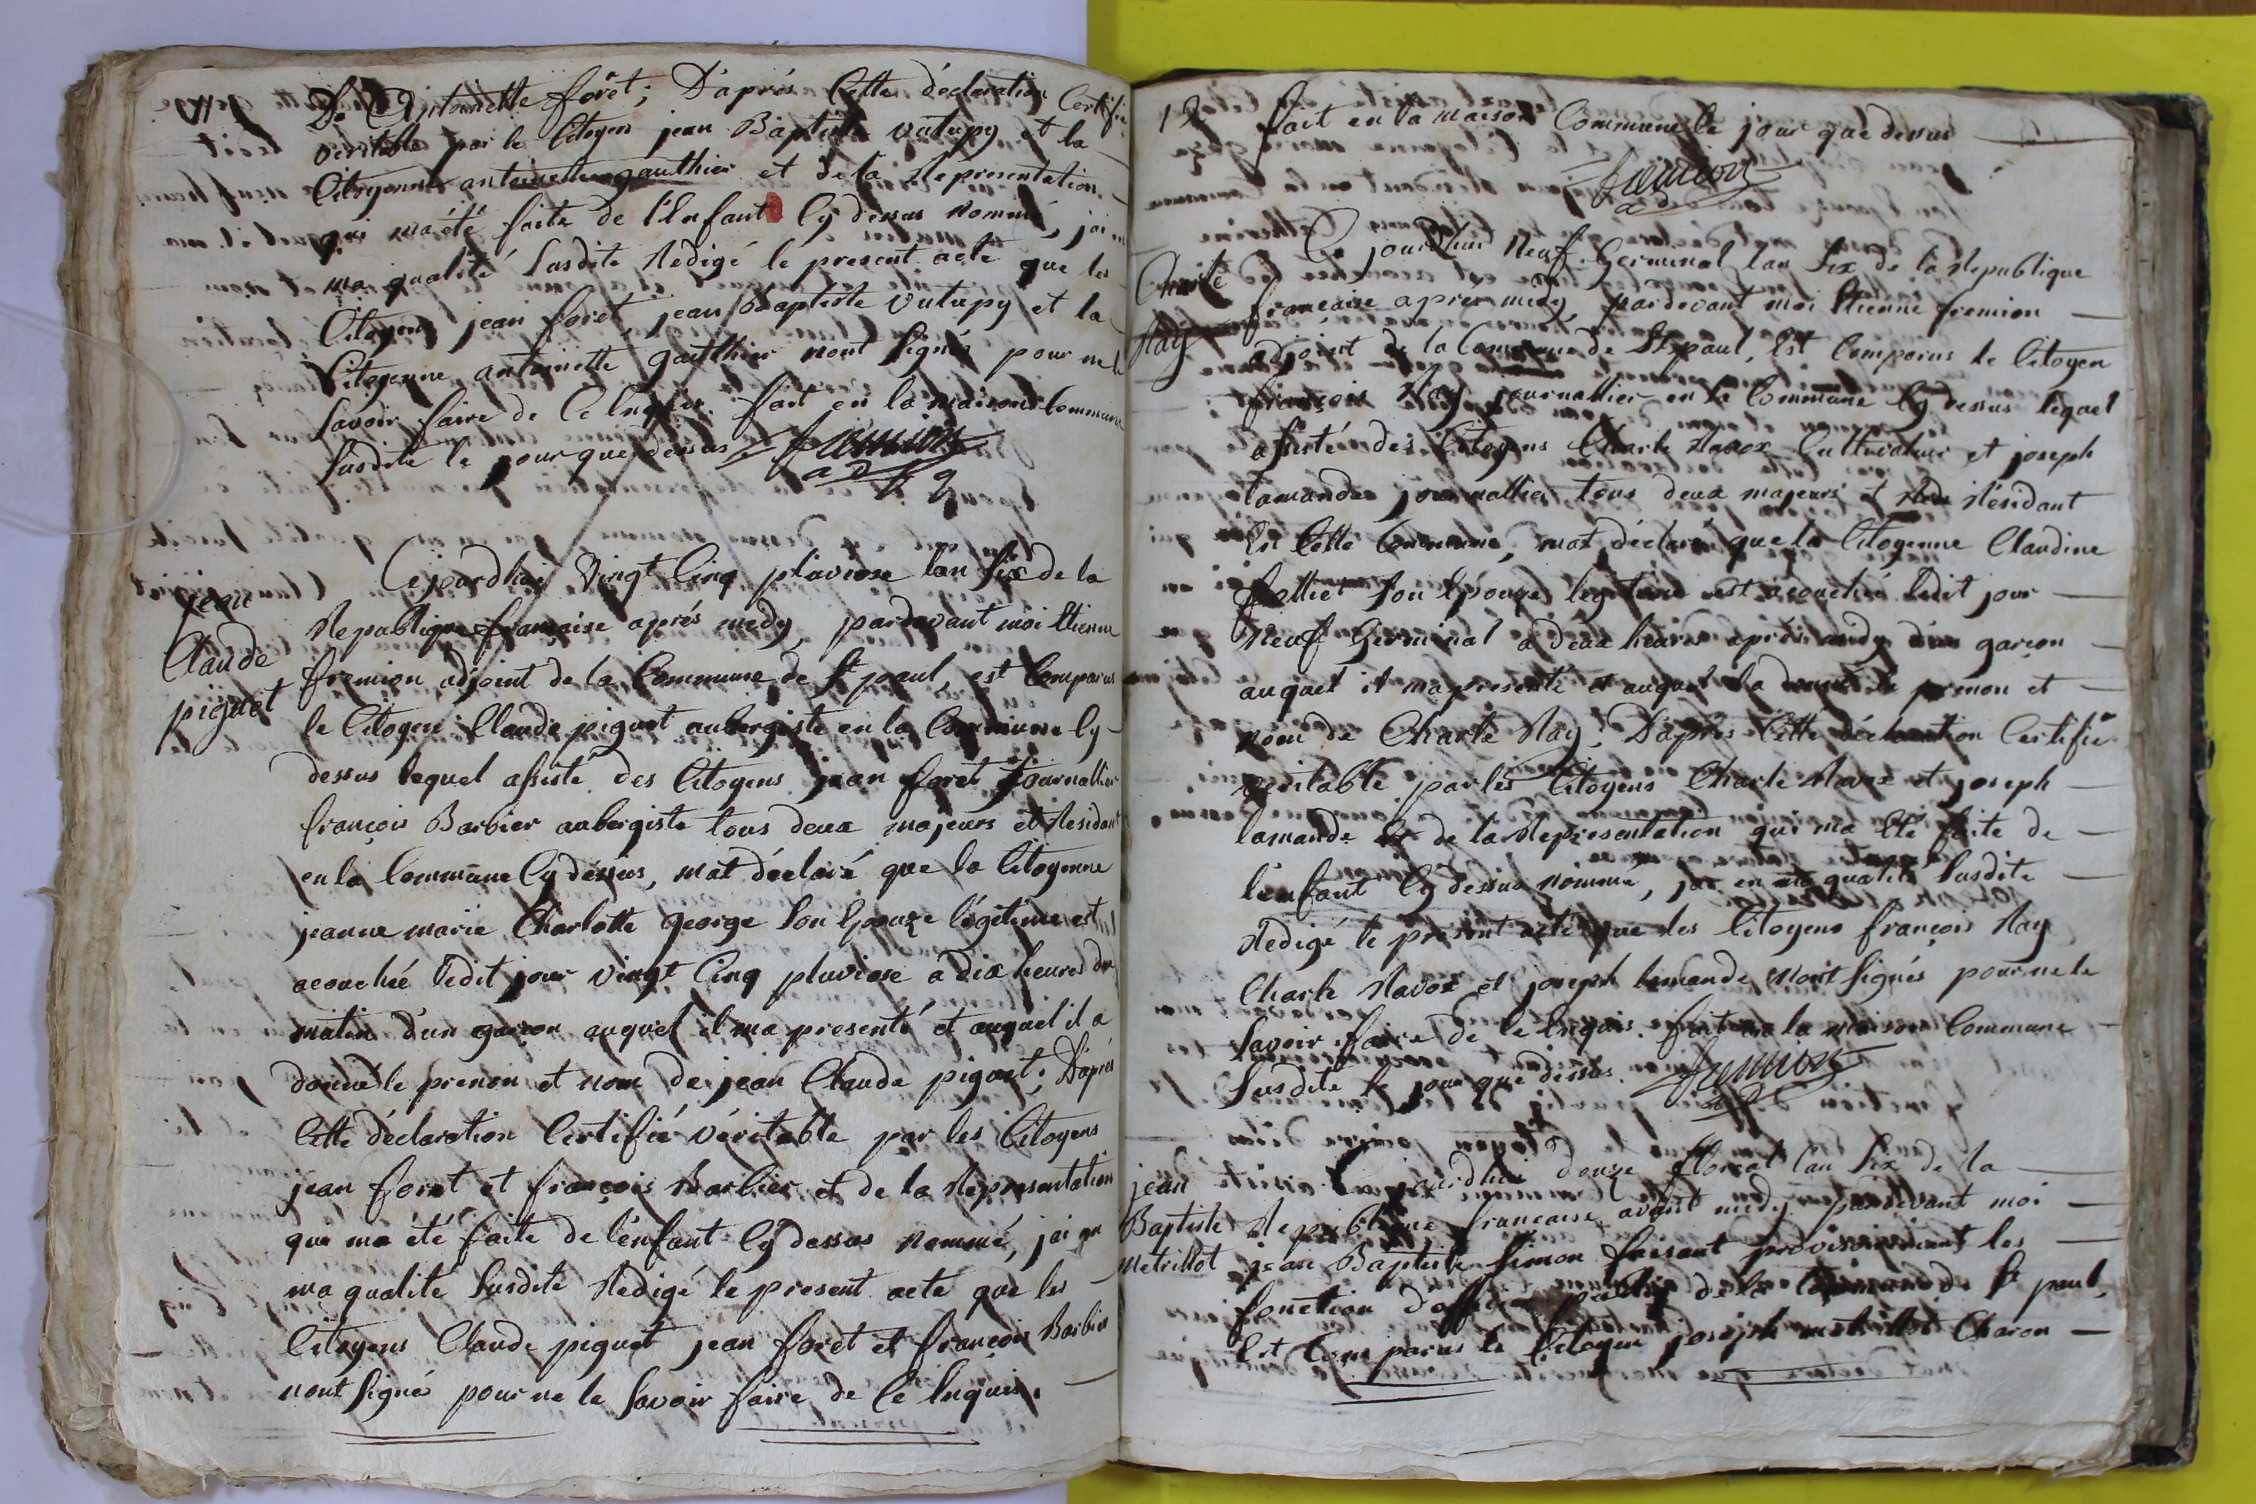 De Antoinette forêt; D'aprés Cette déclaration Certifié
veritable par le Citoyen jean Baptiste vutupy et la
Citoyenne antoinette gauthier et de la Representation
qui ma été faite de l'Enfant Cy dessus Nommé, jai en
ma qualité Susdite Redigé le present acte que les
Citoyens jean foret jean Baptiste vutupy et la
Citoyenne antoinette gauthier nont Signés pour ne le
Savoir faire de Ce Enquis. fait en la maison Commune
Susdite le jour que dessus fremion
adj
jean
Claude
piguet
Cejourdhui Vingt Cinq pluviose lan Six de la
Republique française aprés medy, pardevant moi Etienne
fremion adjoint de la Commune de St paul, est Comparus
le Citoyen Claude piguet aubergiste en la Commune Cy
dessus lequel assisté des Citoyens jean foret journallier
françois Barbier aubergiste tous deux majeurs et Residant
en la Commune Cy dessus, mat déclaré que la Citoyenne
jeanne marie Charlotte george Son Epouze légitime est
acouchée Ledit jour vingt Cinq pluviose a Dix heures du
matin d'un garçon auquel il ma presenté et auquel il a
donné le prenon et nom de jean Claude piguet; D'aprés
Cette déclaration Certifié véritable par les Citoyens
jean foret et françois Barbier et de la Representation
qui ma été faite de l'enfant Cy dessus nommé, jai en
ma qualité Susdite Redigé le present acte que les
Citoyens Claude piguet jean foret et françois Barbier
nont Signés pour ne le Savoir faire de Ce Enquis.
12 fait en la maison Commune le jour que dessus
fremion
ad
Charle
Nay
Ce jourdhui Neuf Germinal lan Six de la Republique
française apres medy, pardevant moi Etienne fremion
adjoint de la Commune de St paul, Est Comparus le Citoyen
françois Nay journallier en la Commune Cy dessus lequel
assisté des Citoyens Charle Navox Cultivateur et joseph
lamande journallier tous deux majeurs et Résidant
En Cette Commune, mat déclaré que la Citoyenne Claudine
Son Epouze legitime est acouchée Ledit jour
Neuf Germinal a deux heures après midy d'un garçon
auquel il ma presenté et auquel il a donné le prenon et
nom de Charle Nay; D'aprés Cette déclaration Certifié
veritable par les Citoyens Charle Navox et joseph
lamande et de la Representation qui ma Eté faite de
l'enfant Cy dessus nommé, jai en ma qualité Susdite
Redigé le present acte que les Citoyens françois Nay
Charle Navox et joseph lamande Nont Signés pour ne le
Savoir faire de Ce Enquis. fait en la maison Commune
Susdite le jour que dessus. fremion
ad
jean
Baptiste
metrillot
Cejourdhui douze floreal lan Six de la
Republique française avant medy pardevant moi
jean Baptiste Simon faisant provisoirement les
fonction d'officier public de la Commune de St paul,
Est Comparus le Citoyen joseph metrillot Charon